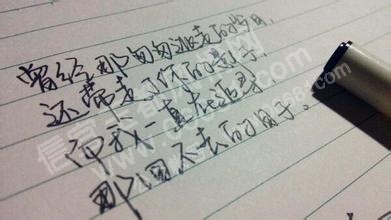 曾经那匆匆逝去的岁月,
还带走了你的影子.
而我一直在追寻
那回不去的日子。